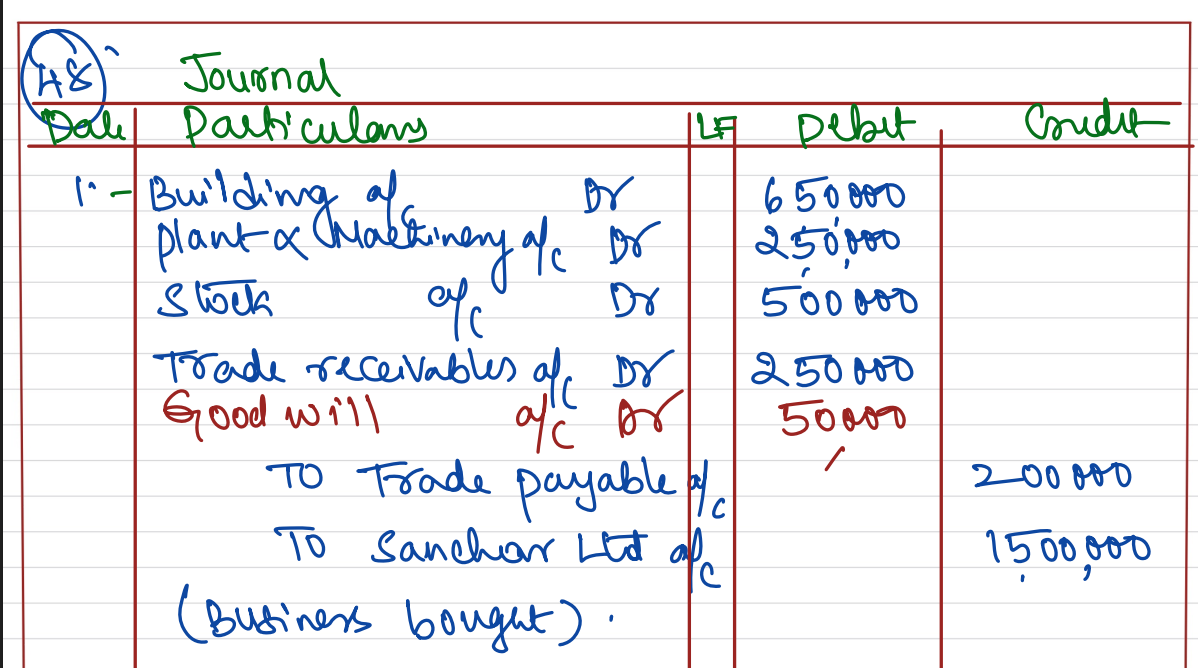 48
Journal
Date Particulars LF Debit Credit
1:- Building a/c Dr 650,000
Plant & Machinery a/c Dr 250,000
Stock a/c Dr 500000
Trade receivables a/c Dr 250000
Goodwill a/c Dr 50000
To Trade payable a/c 200000
To Sanchar Ltd a/c 1500,000
(Business bought).